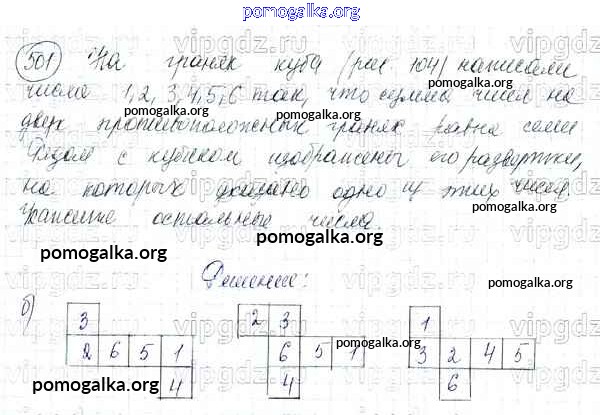 pomogalka.org
501 На гранях куба (рис 104) написали
числа 1,2,3,4,5,6 так, что сумма чисел на
двух противоположных гранях равна семи
Рядом с кубиком изображены его развертки,
на которых указано одно из этих чисел.
Укажите остальные числа.
Решение:
б)
3
2 6 5 1
4
2 3
6 5 1
4
1
3 2 4 5
6
pomogalka.org
pomogalka.org
pomogalka.org
pomogalka.org
pomogalka.org
pomogalka.org
pomogalka.org
pomogalka.org
pomogalka.org